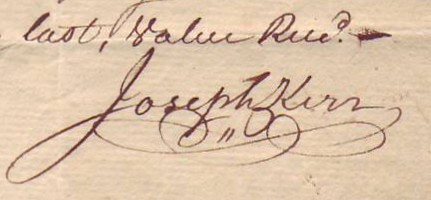 last, Value Recd.
Joseph Kerr